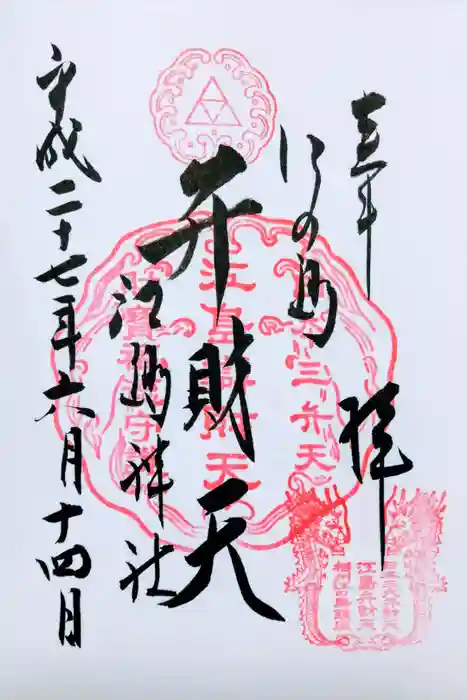 奉拝
江の島
弁財天
江島神社
平成二十七年六月十四日
日本三弁天
江島弁財天